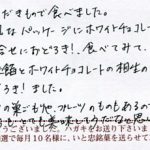 だきもので食べました。
なパッケージにホワイトチョコレート
合せにおどろき!、食べてみて、
餡とホワイトチョコレートの相生の
ろき!ました。
の栗もや、フルーツのものもあるので
うございました。ハガキをお送り下さいま
選で毎月10名様に、いと忠銘菓を送らせて